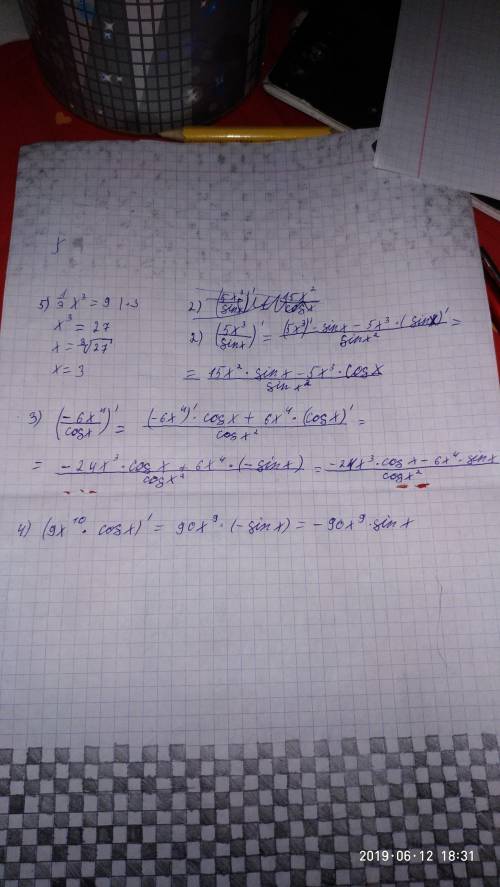 5) 1/3 x³ = 9 | ·3
x³ = 27
x = ³√27
x = 3
2) (5x³/sinx)' 15x²/cosx
2) (5x³/sinx)' = (5x³)' · sinx − 5x³ · (sinx)' / sinx² =
= 15x² · sinx − 5x³ · cosx / sinx²
3) (−6x⁴/cosx)' = (−6x⁴)' · cosx + 6x⁴ · (cosx)' / cosx² =
= −24x³ · cosx + 6x⁴ · (−sinx) / cosx² = −24x³ · cosx − 6x⁴ · sinx / cosx²
4) (9x¹⁰ · cosx)' = 90x⁹ · (−sinx) = −90x⁹ · sinx
2019·06·12 18:31